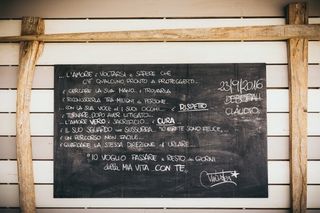 ... L'AMORE È VOLTARSI E SAPERE CHE
C'È QUALCUNO PRONTO A PROTEGGERTI...
È CERCARE LA SUA MANO... TROVARLA
È RICONOSCERLA TRA MILIONI DI PERSONE
... CON LA SUA VOCE ED I SUOI OCCHI... È RISPETTO
È TORNARE, DOPO AVER LITIGATO...
L'AMORE VERO È SACRIFICIO... È CURA
È IL SUO SGUARDO CHE SUSSURRA: "IO PARTE SONO FELICE,
UN PERCORSO NON FACILE...
È GUARDARE LA STESSA DIREZIONE E URLARE...
"IO VOGLIO PASSARE IL RESTO DEI GIORNI
DELLA MIA VITA CON TE"
23/9/2016
DEBORAH
CLAUDIO